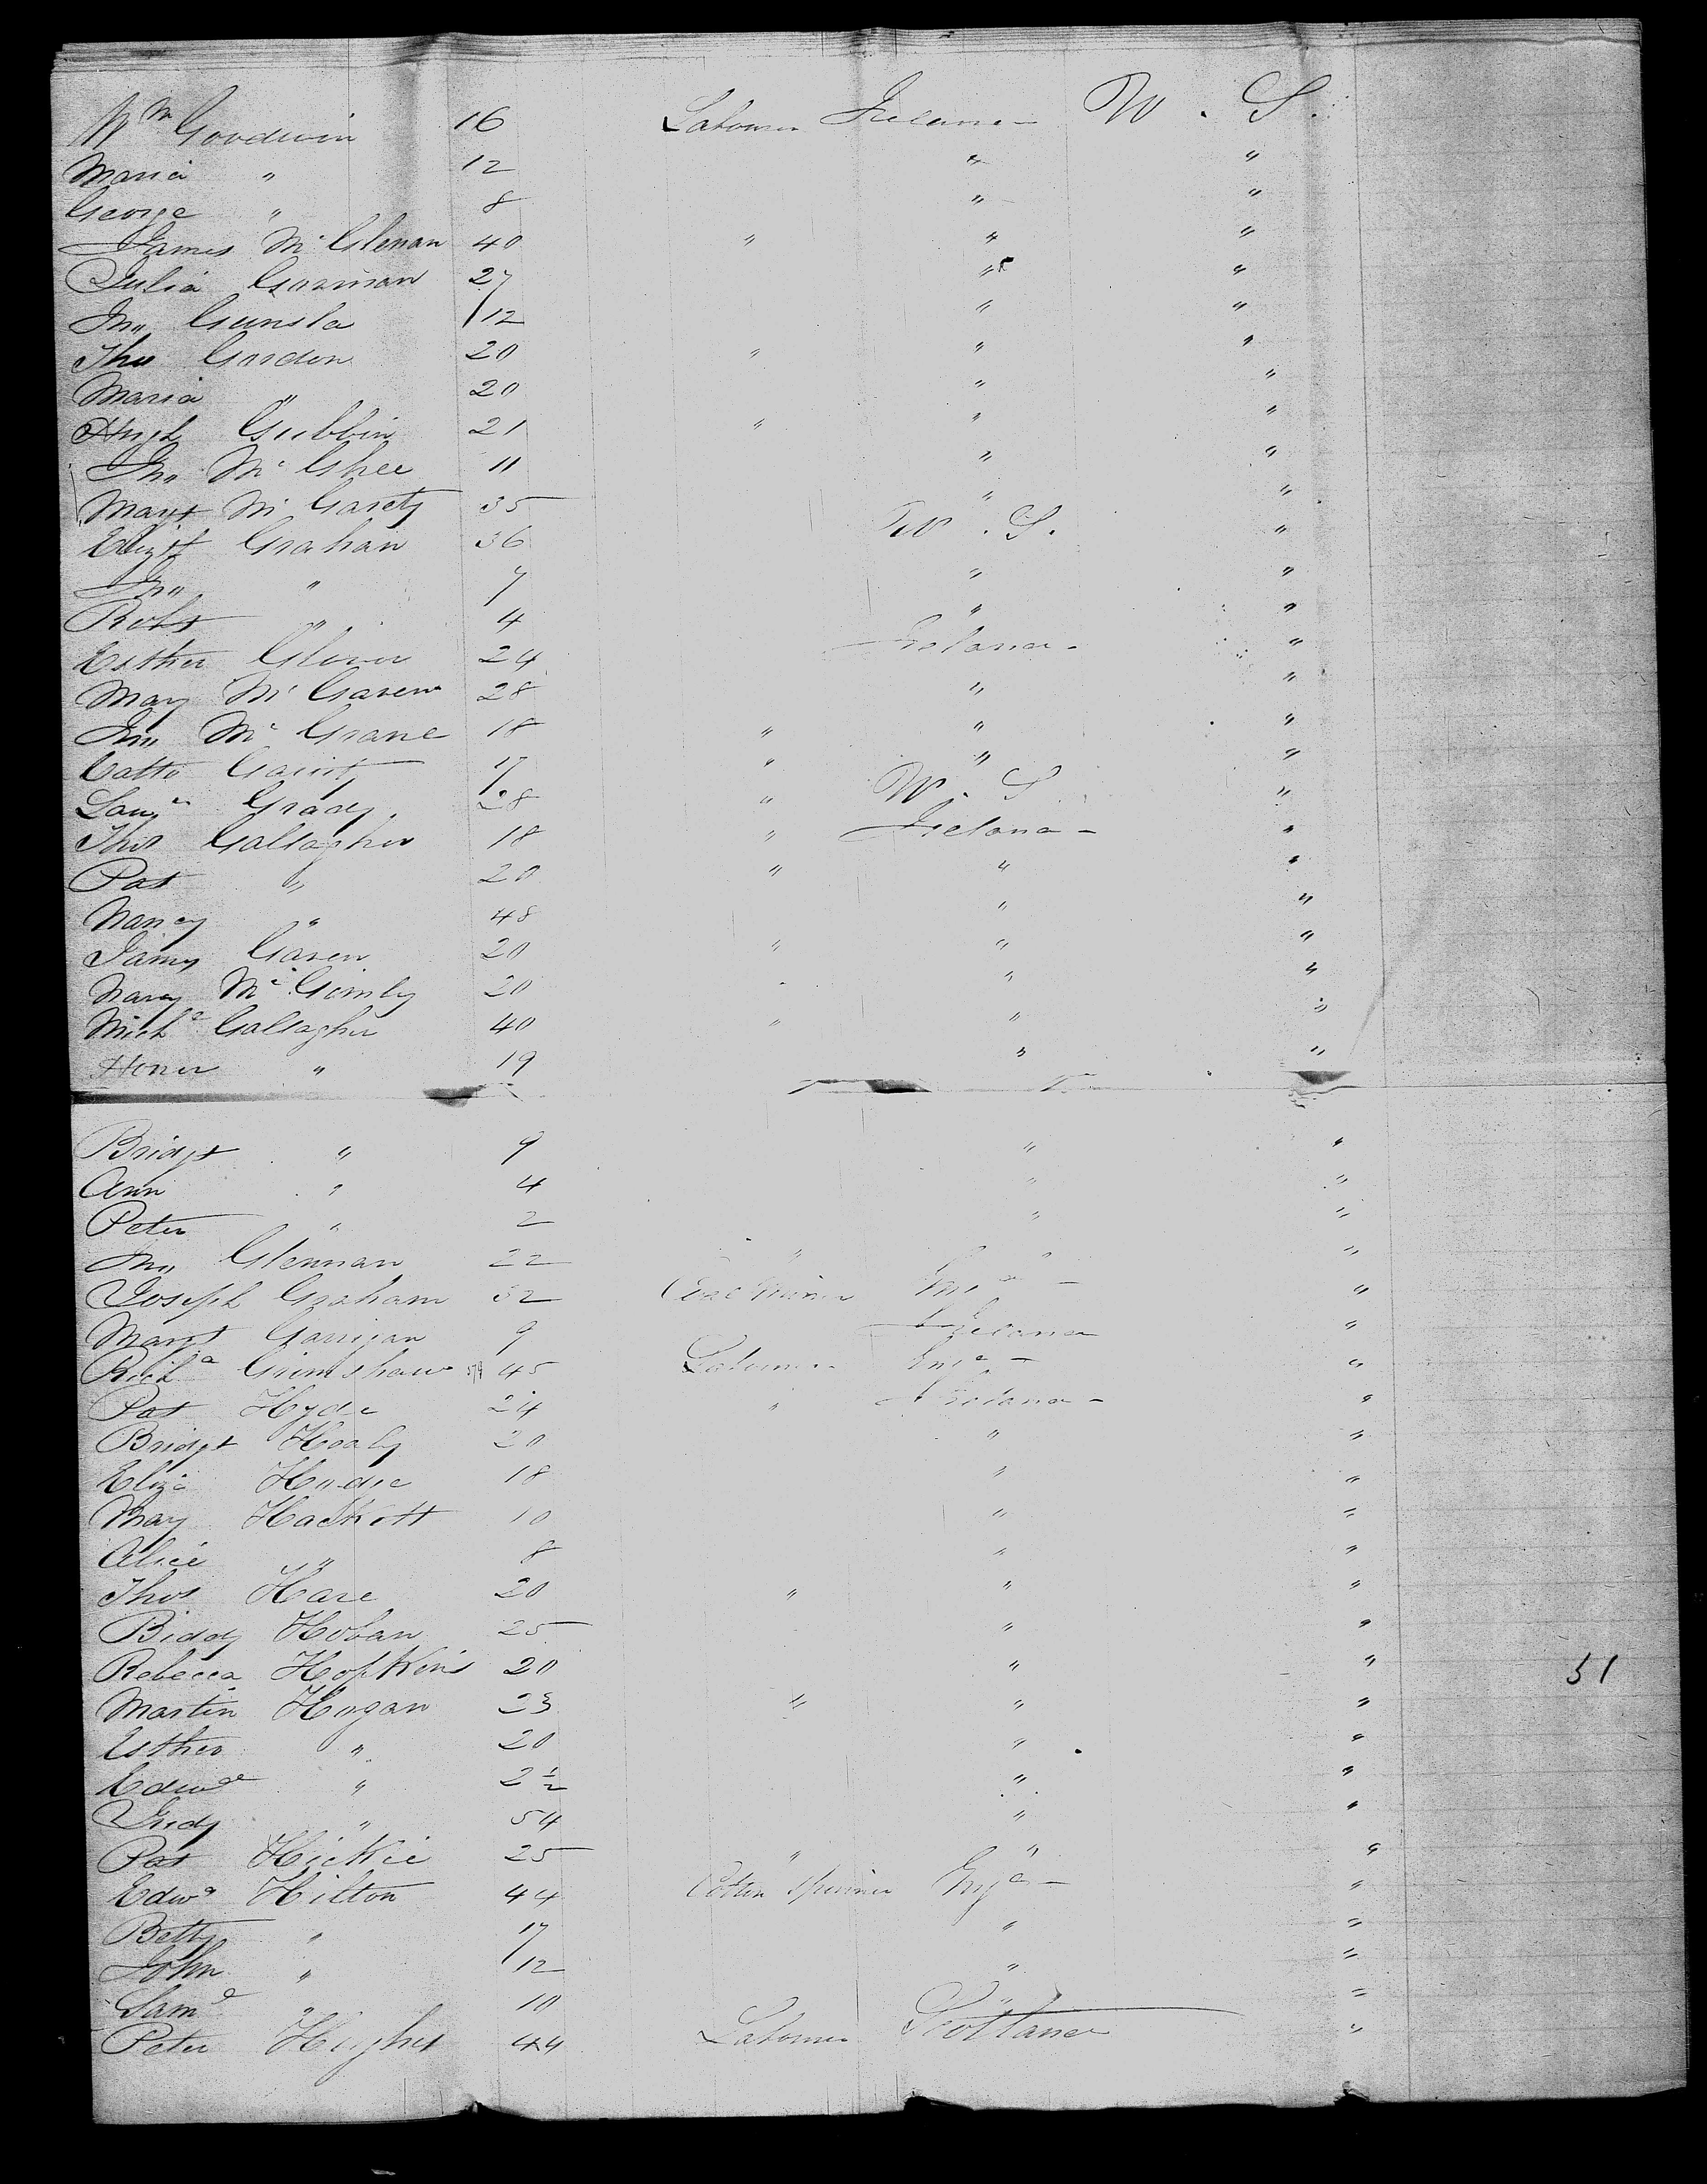 Wm Goodwin 16 Labourer Ireland W. S.
Maria " 12 " "
George " 8 " "
James McGlenan 40 " " "
Julia Gorman 27 " "
Jno 12 " "
Thos Gordon 20 " " "
Maria " 20 " "
Hugh Gubbin 21 " " "
Jno McGhee 11 " "
Margt McGarety 35 " "
Elizth Graham 36 W. S. "
Jno " 7 " "
Robt " 4 " "
Esther Glover 24 Ireland "
Mary McGaren 28 " "
Jno McGrane 18 " " "
Garity 17 " " "
Grady 28 " W. S. "
Thos Gallagher 18 " Ireland "
Pat " 20 " " "
Nancy " 48 " "
James Garen 20 " " "
Nancy McGimly 20 " "
Michl Gallagher 40 " " "
Honor " 19 " "
Bridgt " 9 " "
Ann " 4 " "
Peter " 2 " "
Jno Glennan 22 " " "
Joseph Graham 32 Coal Miner Engd "
Margt Garrigan 9 Ireland "
Richd Grimshaw 45 Labourer Engd "
Pat Hyde 24 " Ireland "
Bridgt Healy 20 " "
Eliza 18 " "
Mary Haskott 10 " "
Alice " 8 " "
Thos Hare 20 " " "
Biddy Hoban 25 " "
Rebecca Hopkins 20 " " 51
Martin Hogan 23 " " "
Esther " 20 " "
Edwd " 2½ " "
Judy " 54 " "
Pat Hickie 25 " " "
Edwd Hilton 44 Cotton Spinner Engd "
Betty " 17 " "
John " 12 " "
Saml " 10 " "
Peter Hughes 44 Labourer Scotland "